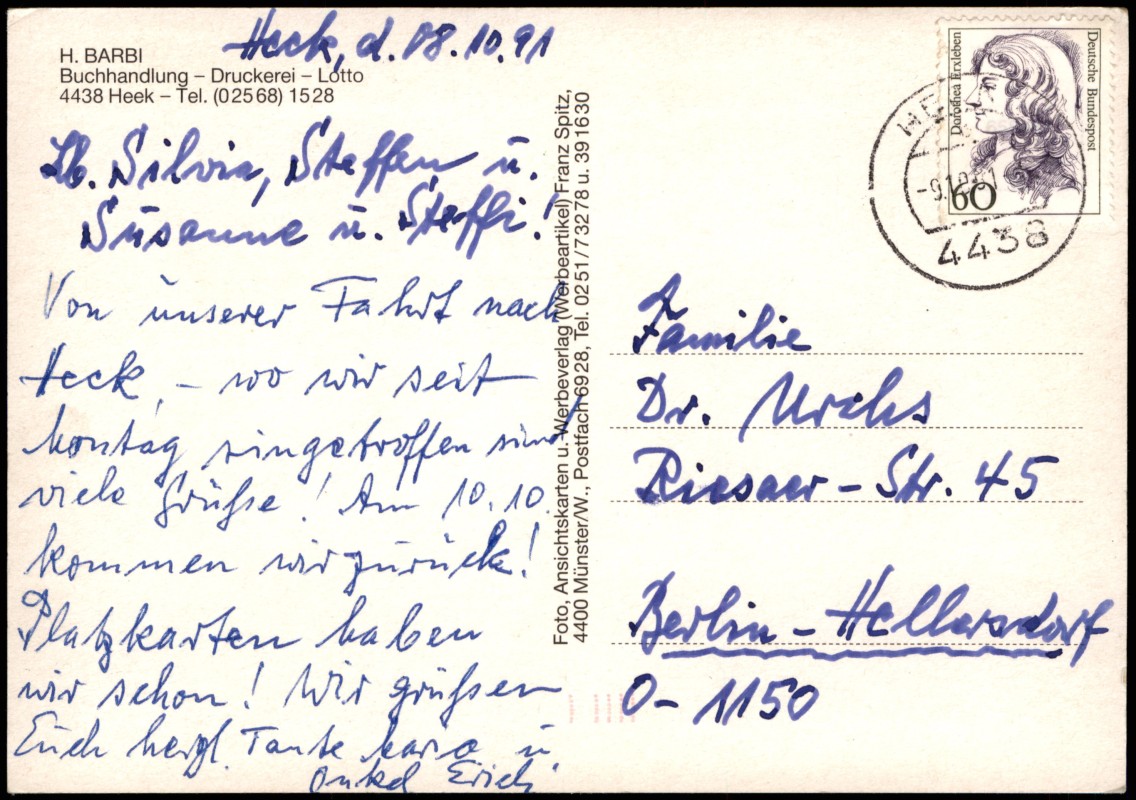 Heek, d. 08.10.91
H. BARBI
Buchhandlung – Druckerei – Lotto
4438 Heek – Tel. (02568) 1528
Lb. Silvia, Steffen u.
Susanne u. Steffi!
Von unserer Fahrt nach
Heek, – wo wir seit
Montag eingetroffen sind
viele Grüße! Am 10.10.
kommen wir zurück!
Platzkarten haben
wir schon! Wir grüßen
Euch herzl. Tante u.
Onkel Erich
Foto, Ansichtskarten u. Werbeverlag (Werbeartikel) Franz Spitz,
4400 Münster/W., Postfach 6928, Tel. 0251/73278 u. 391630
Dorothea Erxleben
Deutsche Bundespost
60
4438
Familie
Dr. Urchs
Riesaer-Str. 45
Berlin-Hellersdorf
O-1150